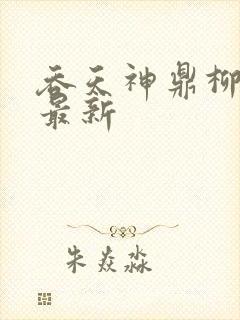 吞天神鼎柳
最新
朱焱淼